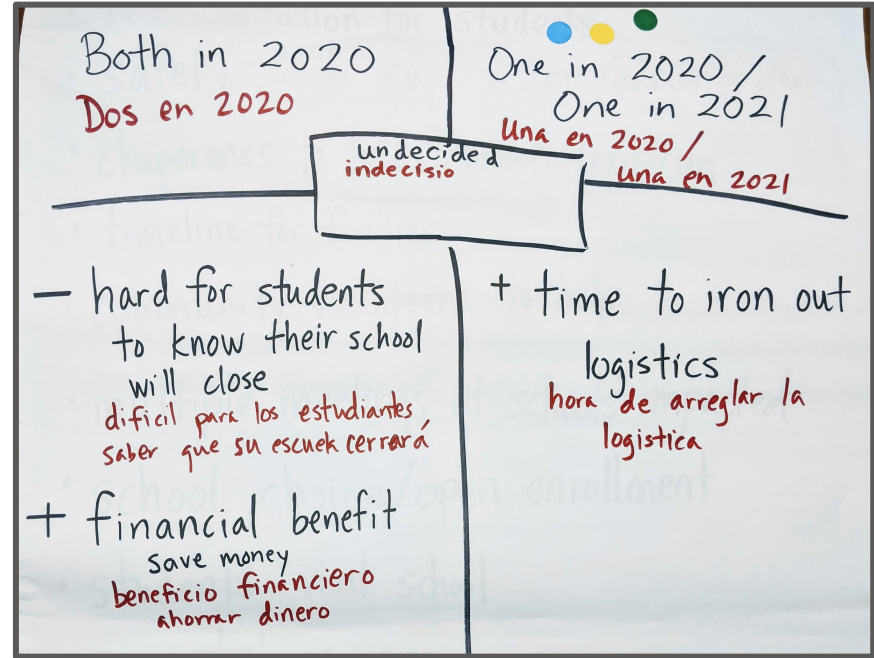 Both in 2020
Dos en 2020
One in 2020 /
One in 2021
Una en 2020 /
una en 2021
undecided
indecisio
– hard for students
to know their school
will close
dificil para los estudiantes
saber que su escuela cerrará
+ financial benefit
save money
beneficio financiero
ahorrar dinero
+ time to iron out
logistics
hora de arreglar la
logistica
school choice/open enrollment